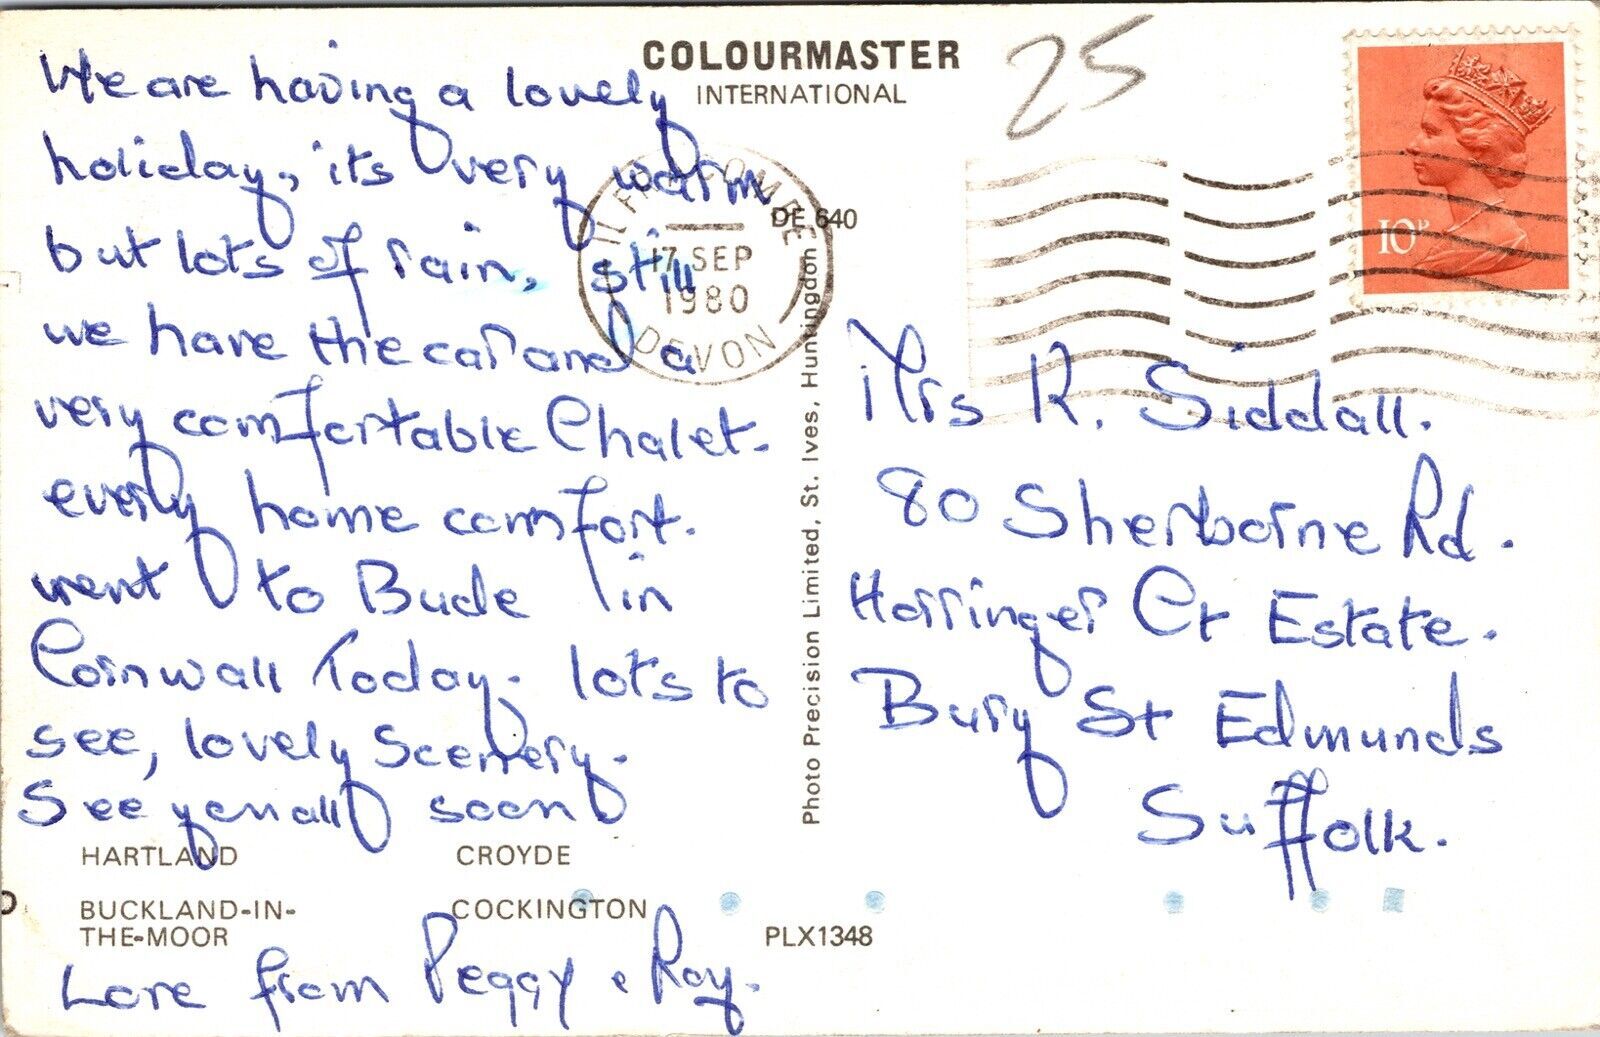 We are having a lovely
holiday, its very warm
but lots of rain, still
we have the car and a
very comfortable Chalet.
every home comfort.
went to Bude in
Cornwall Today. lots to
see, lovely Scenery.
See you all soon
Love from Peggy & Roy.
COLOURMASTER
INTERNATIONAL
25
ILFRACOMBE
17 SEP
1980
DEVON
DE 640
10P
Photo Precision Limited, St. Ives, Huntingdon
Mrs R. Siddall.
80 Sherborne Rd.
Horringer Ct Estate.
Bury St Edmunds
Suffolk.
HARTLAND
CROYDE
BUCKLAND-IN-
THE-MOOR
COCKINGTON
PLX1348